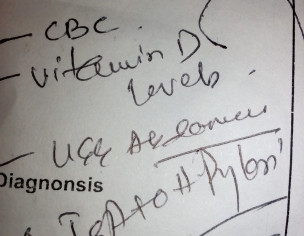 - CBC
- Vitamin D
levels.
- USG Abdomen
Diagnonsis
H Pylori